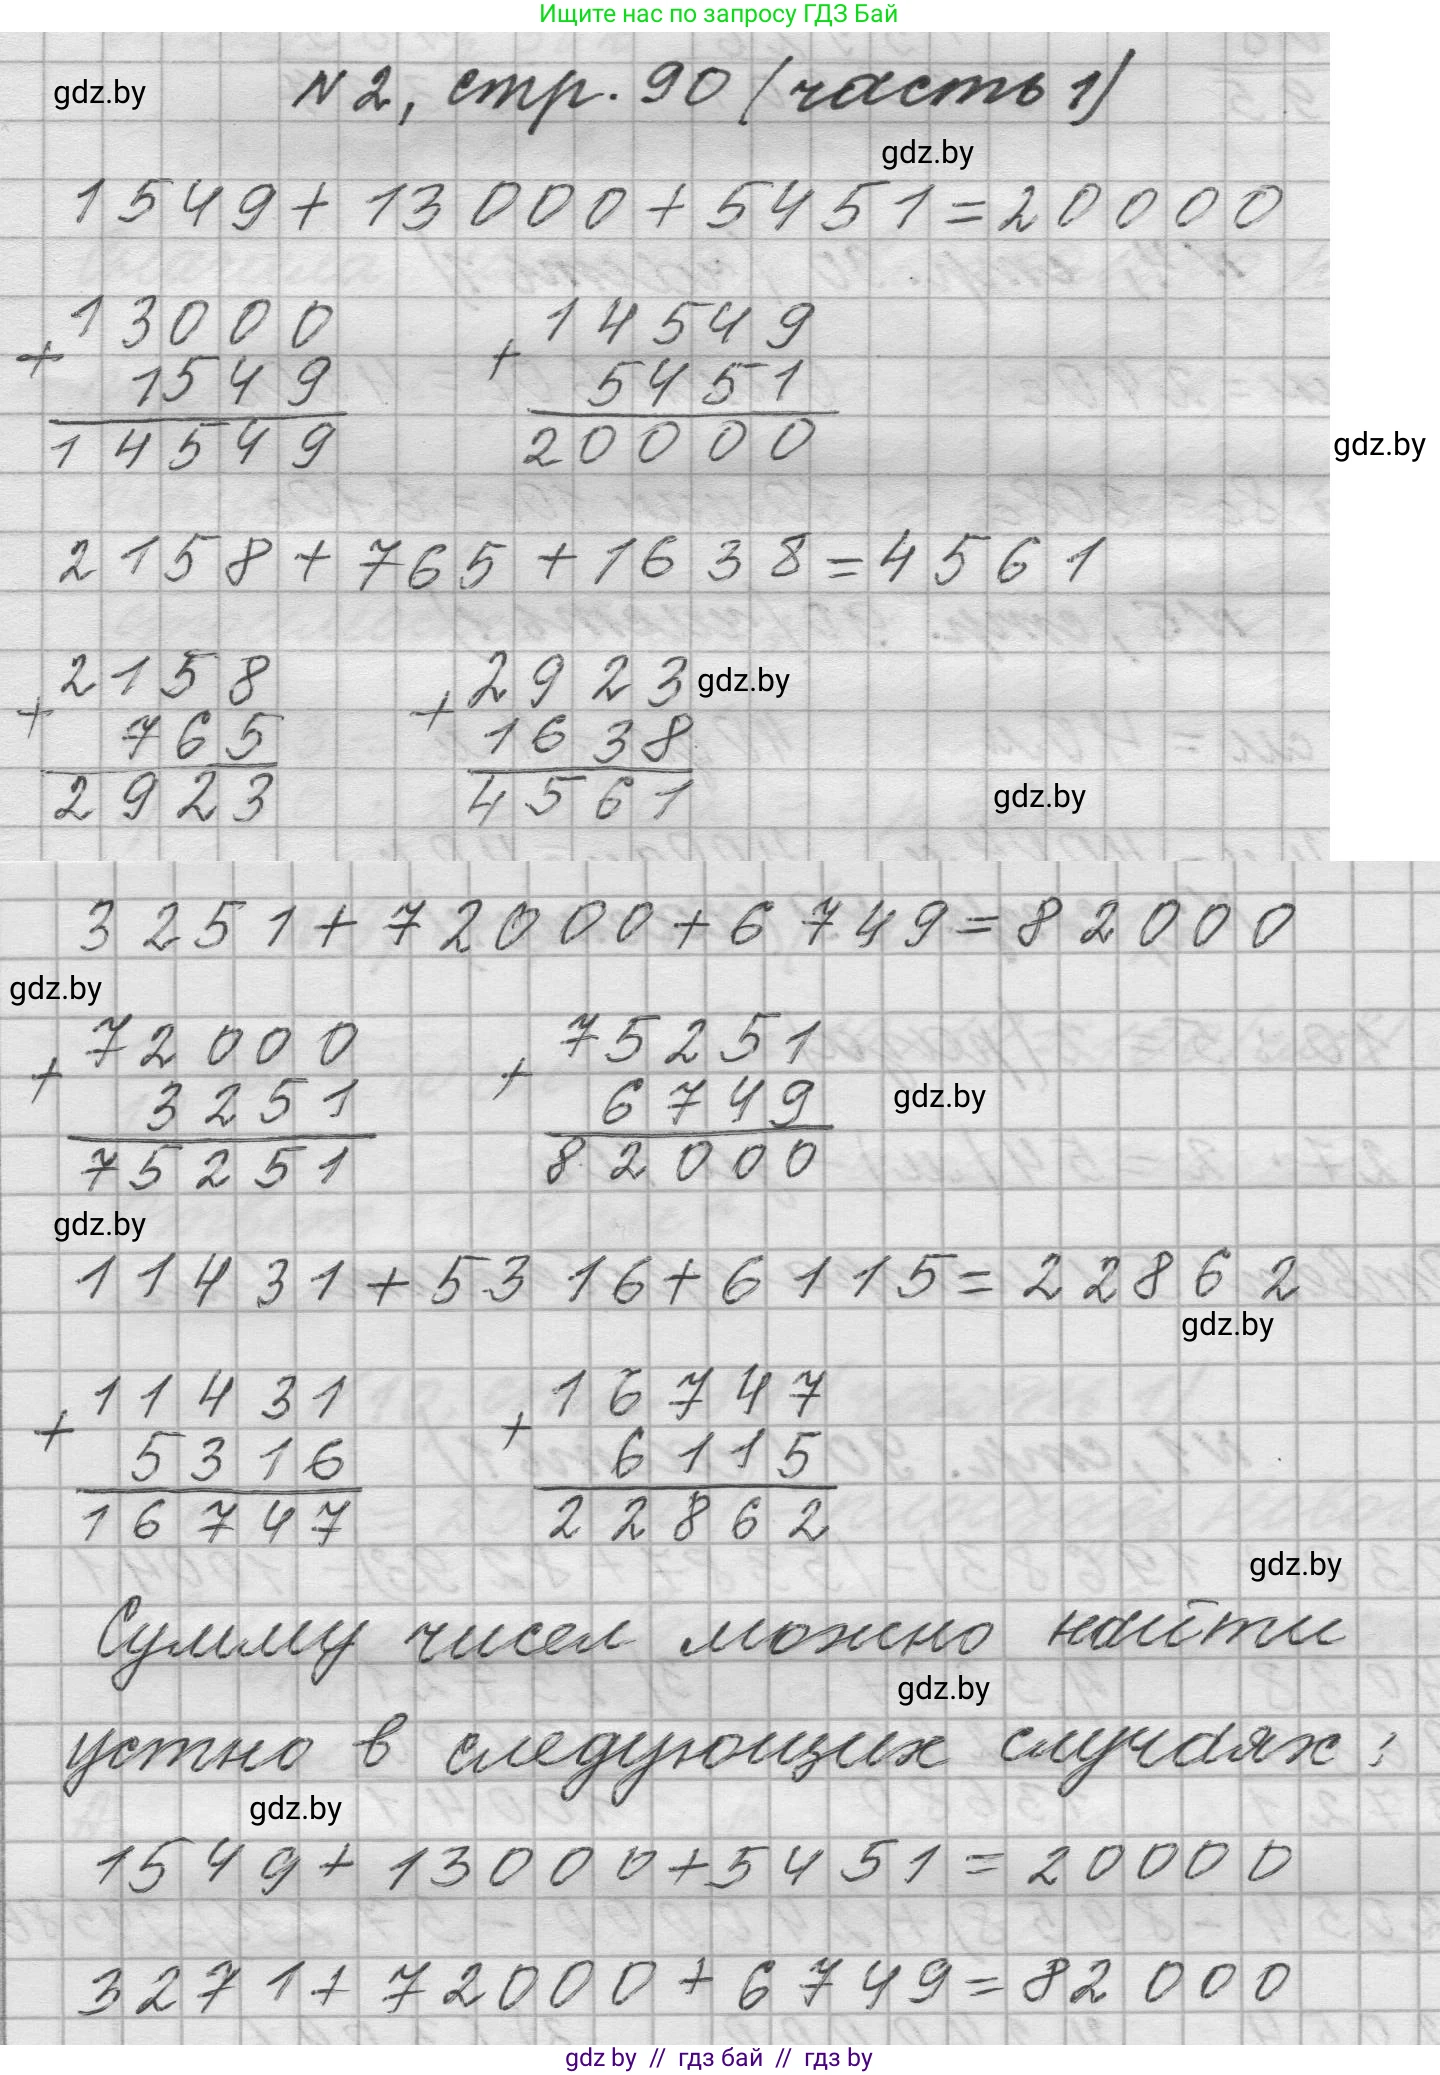 Ищите нас по запросу ГДЗ Бай
N 2, стр. 90 (часть 1)
gdz.by
gdz.by
1549+13000+5451=20000
13000
+
1549
14549
14549
+
5451
20000
gdz.by
2158+765+1638=4561
2158
+
765
2923
2923
+
1638
4561
gdz.by
gdz.by
3251+72000+6749=82000
gdz.by
72000
+
3251
75251
75251
+
6749
82000
gdz.by
gdz.by
11431+5316+6115=22862
gdz.by
11431
+
5316
16747
16747
+
6115
22862
gdz.by
Сумму чисел можно найти
gdz.by
устно в следующих случаях:
gdz.by
1549+13000+5451=20000
3271+72000+6749=82000
gdz by // гдз бай // гдз by